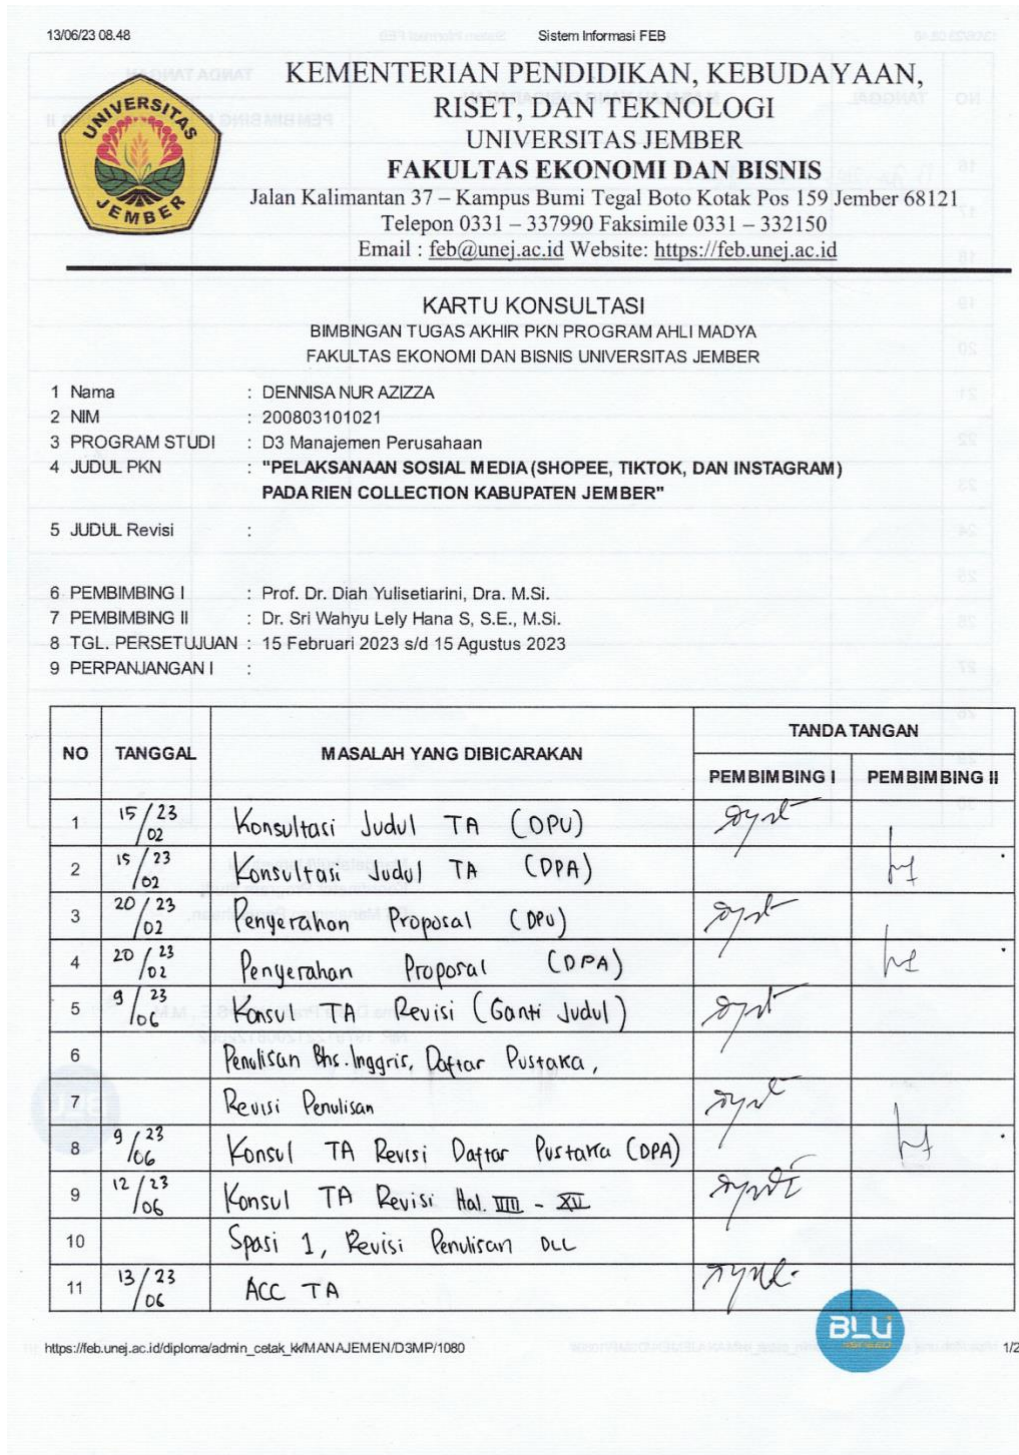 13/06/23 08.48 Sistem Informasi FEB
KEMENTERIAN PENDIDIKAN, KEBUDAYAAN,
RISET, DAN TEKNOLOGI
UNIVERSITAS JEMBER
FAKULTAS EKONOMI DAN BISNIS
Jalan Kalimantan 37 – Kampus Bumi Tegal Boto Kotak Pos 159 Jember 68121
Telepon 0331 – 337990 Faksimile 0331 – 332150
Email : feb@unej.ac.id Website: https://feb.unej.ac.id
UNIVERSITAS
JEMBER
KARTU KONSULTASI
BIMBINGAN TUGAS AKHIR PKN PROGRAM AHLI MADYA
FAKULTAS EKONOMI DAN BISNIS UNIVERSITAS JEMBER
1 Nama : DENNISA NUR AZIZZA
2 NIM : 200803101021
3 PROGRAM STUDI : D3 Manajemen Perusahaan
4 JUDUL PKN : "PELAKSANAAN SOSIAL MEDIA (SHOPEE, TIKTOK, DAN INSTAGRAM)
PADA RIEN COLLECTION KABUPATEN JEMBER"
5 JUDUL Revisi :
6 PEMBIMBING I : Prof. Dr. Diah Yulisetiarini, Dra. M.Si.
7 PEMBIMBING II : Dr. Sri Wahyu Lely Hana S, S.E., M.Si.
8 TGL. PERSETUJUAN : 15 Februari 2023 s/d 15 Agustus 2023
9 PERPANJANGAN I :
NO TANGGAL MASALAH YANG DIBICARAKAN TANDA TANGAN
PEMBIMBING I PEMBIMBING II
1 15/02 23 Konsultasi Judul TA (DPU)
2 15/02 23 Konsultasi Judul TA (DPA)
3 20/02 23 Penyerahan Proposal (DPU)
4 20/02 23 Penyerahan Proposal (DPA)
5 9/06 23 Konsul TA Revisi (Ganti Judul)
6 Penulisan Bhs. Inggris, Daftar Pustaka,
7 Revisi Penulisan
8 9/06 23 Konsul TA Revisi Daftar Pustaka (DPA)
9 12/06 23 Konsul TA Revisi Hal. IIII - XV
10 Spasi 1, Revisi Penulisan DLL
11 13/06 23 ACC TA
BLU
https://feb.unej.ac.id/diploma/admin_cetak_kk/MANAJEMEN/D3MP/1080 1/2